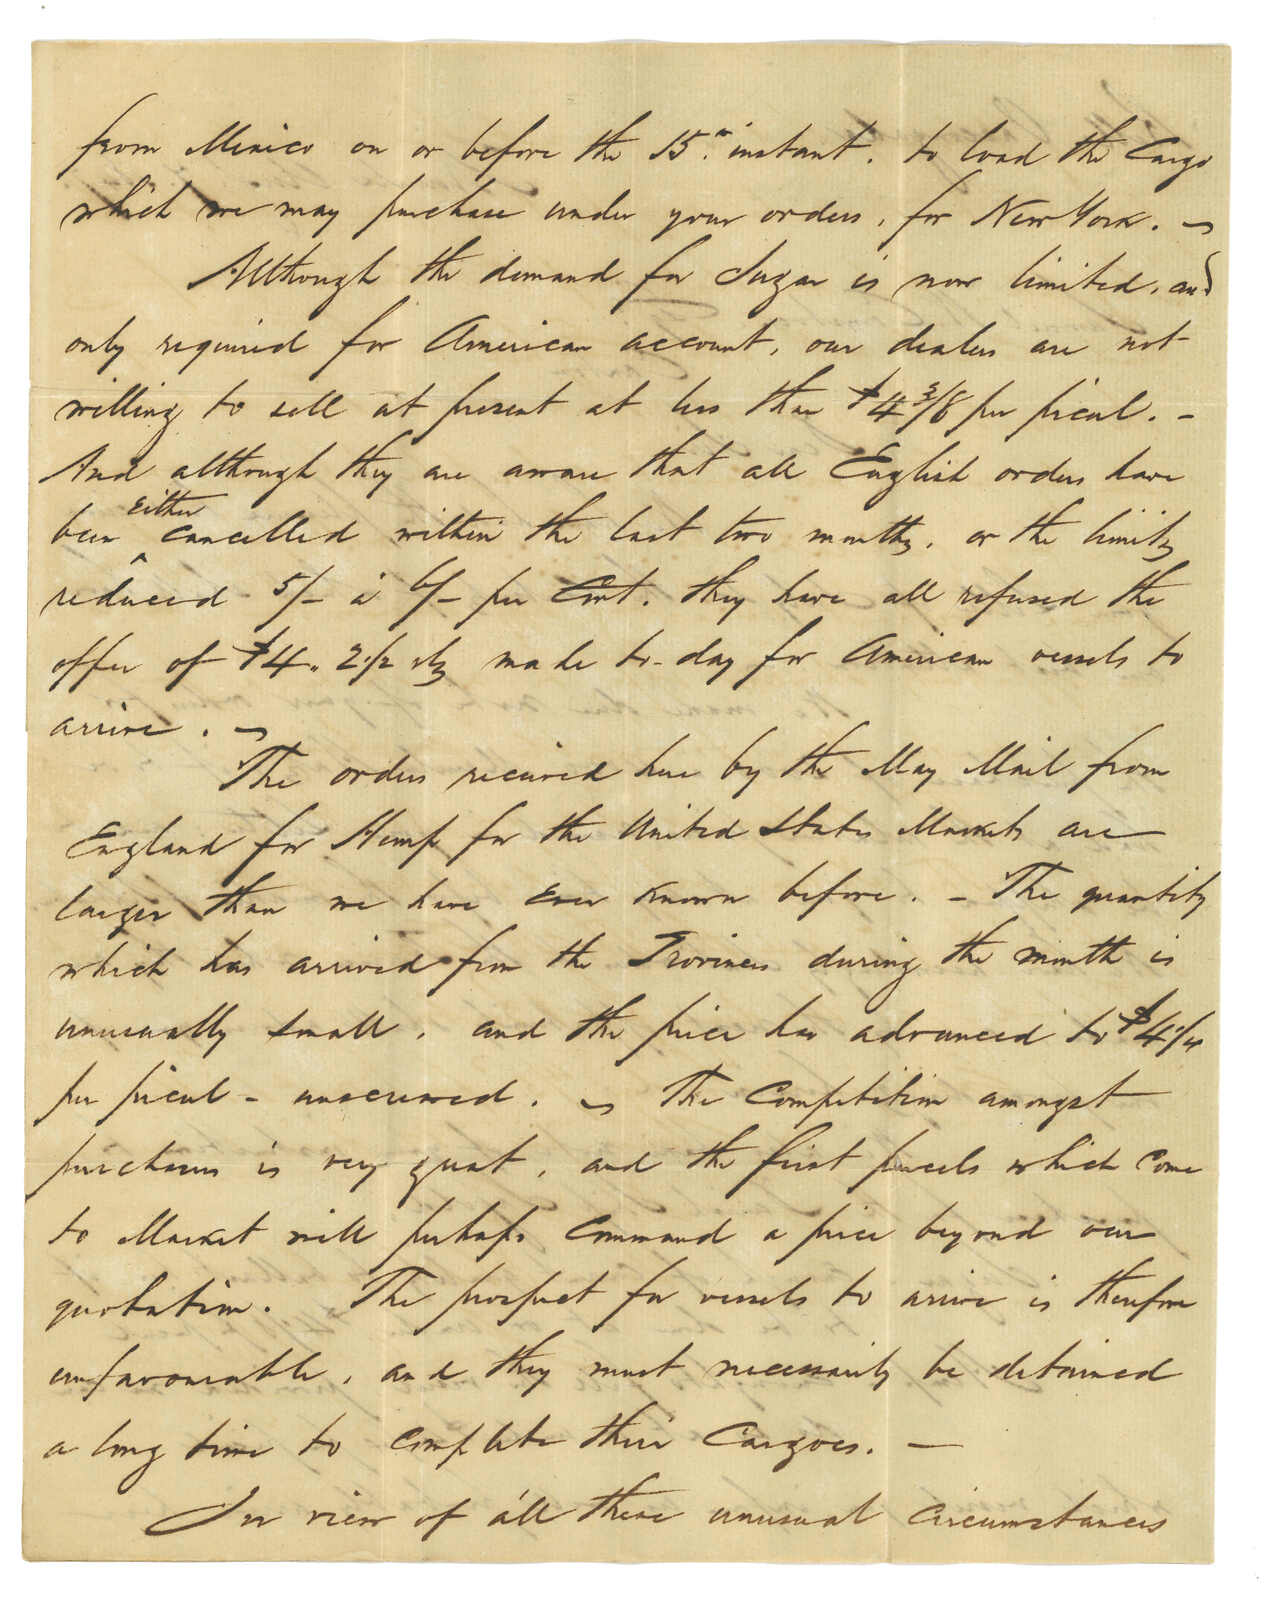 from Mexico on or before the 15.th instant. to load the Cargo
which we may purchase under your orders, for New York. –
Although the demand for Sugar is now limited, and
only required for American account, our dealers are not
willing to sell at present at less than $4 3/8 per picul. –
And although they are aware that all English orders have
been ^either cancelled within the last two months, or the limits
reduced 5/– à 6/– per Cwt. they have all refused the
offer of $4„ 2 1/2 rls made to-day for American vessels to
arrive. –
The orders received here by the May Mail from
England for Hemp for the United States Markets are
larger than we have ever known before. – The quantity
which has arrived from the Provinces during the month is
unusually small, and the price has advanced to $4 1/4
per picul – unscrewed. – The Competition amongst
purchasers is very great, and the first parcels which come
to Market will perhaps command a price beyond our
quotation. The prospect for vessels to arrive is therefore
unfavourable, and they must necessarily be detained
a long time to complete their Cargoes. –
In view of all these unusual circumstances